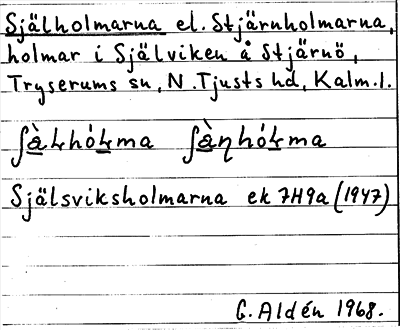 Själholmarna el. Stjärnholmarna,
holmar i Själviken å Stjärnö,
Tryserums sn, N. Tjusts hd, Kalm.l.
Själsviksholmarna ek 7H9a (1947)
G. Aldén 1968.